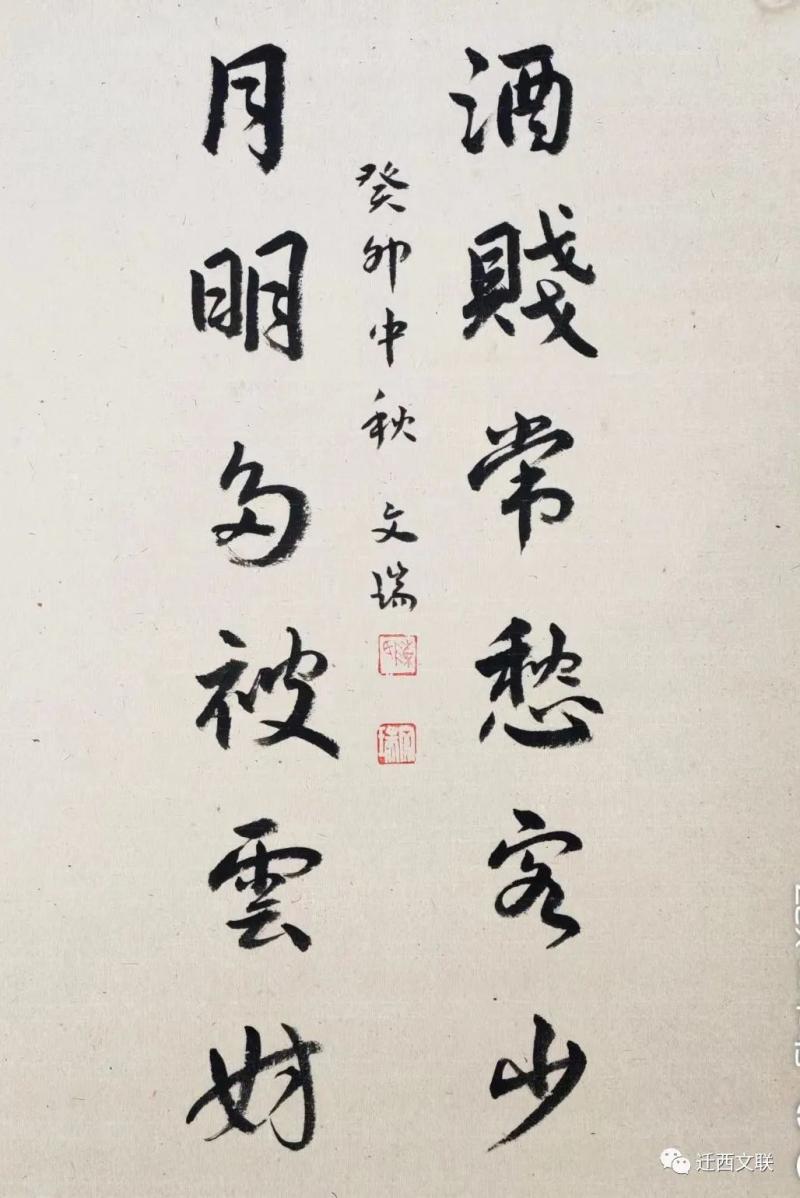 酒賤常愁客少
月明多被雲妨
癸卯中秋 文瑞
迁西文联